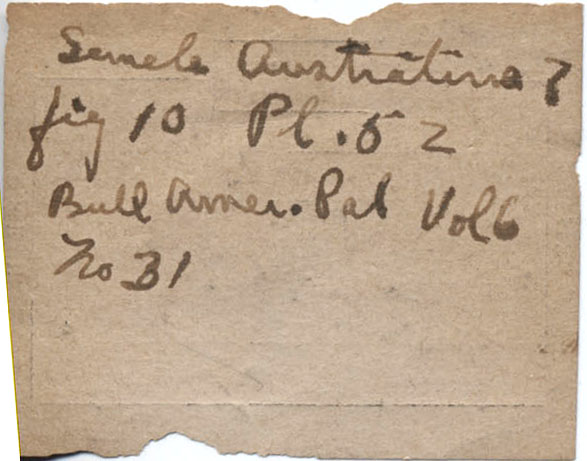 Semele Australina ?
fig 10 Pl. 52
Bull Amer. Pal Vol 6
No 31